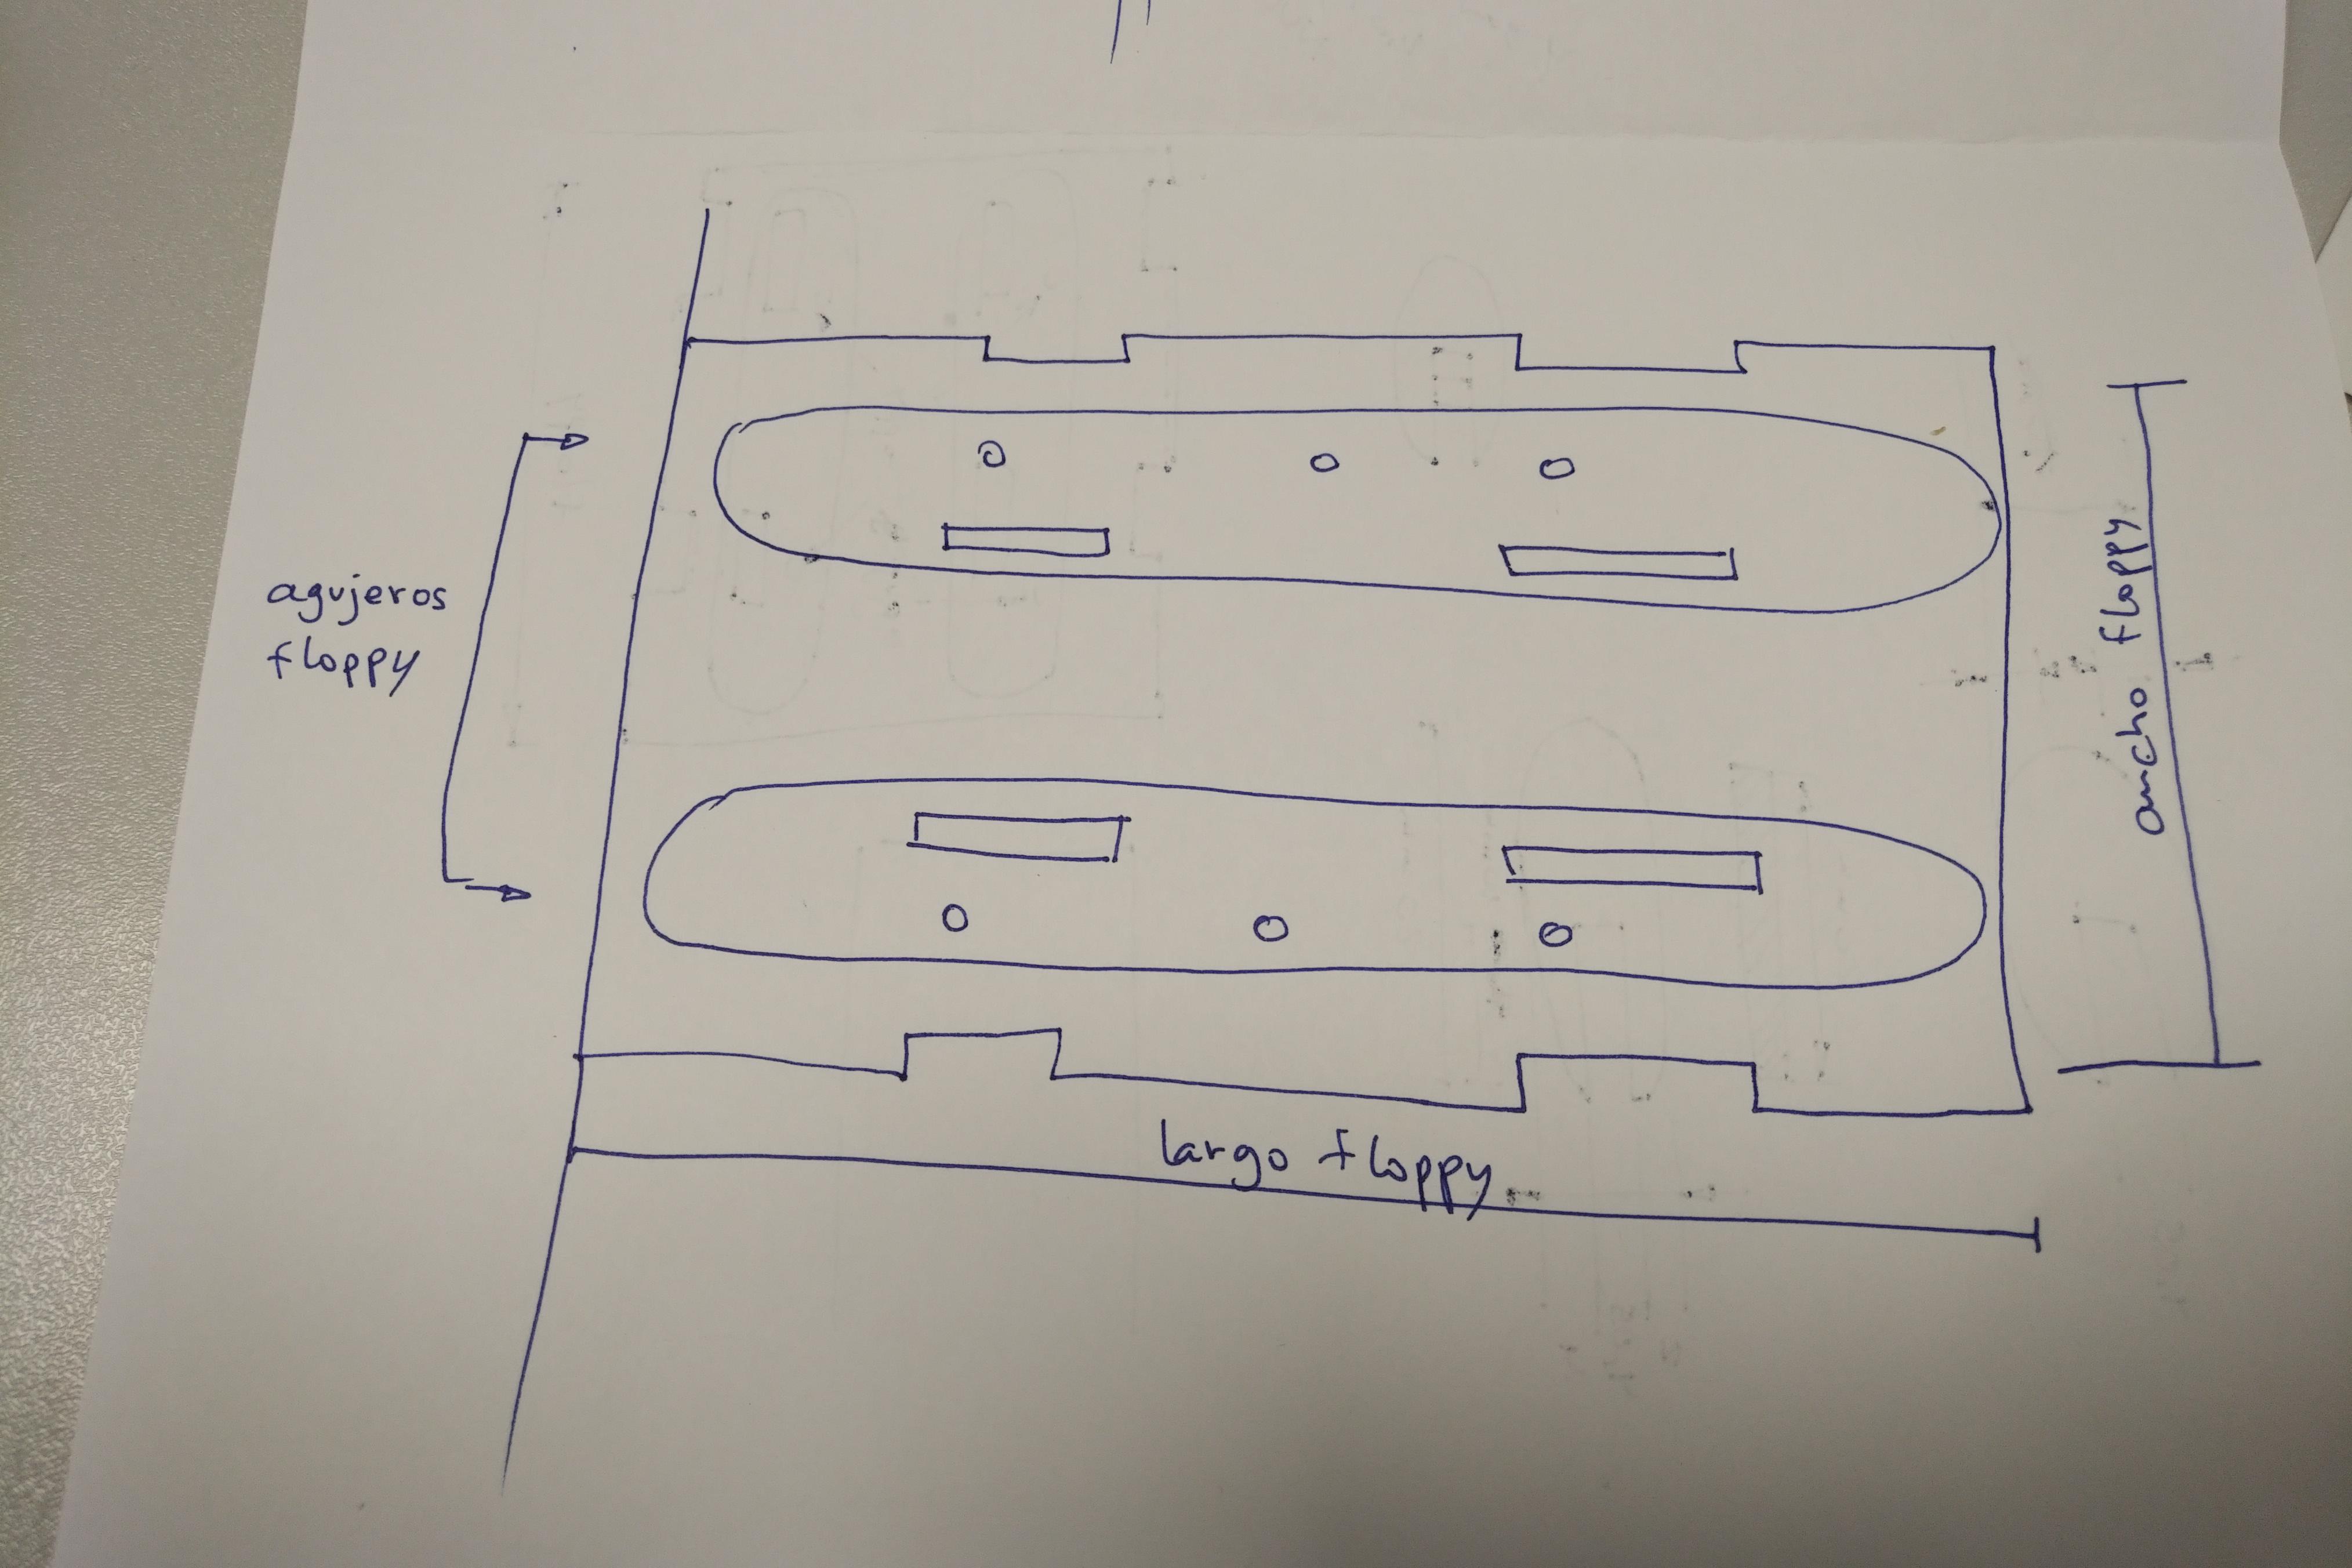 agujeros
floppy
ancho floppy
largo floppy